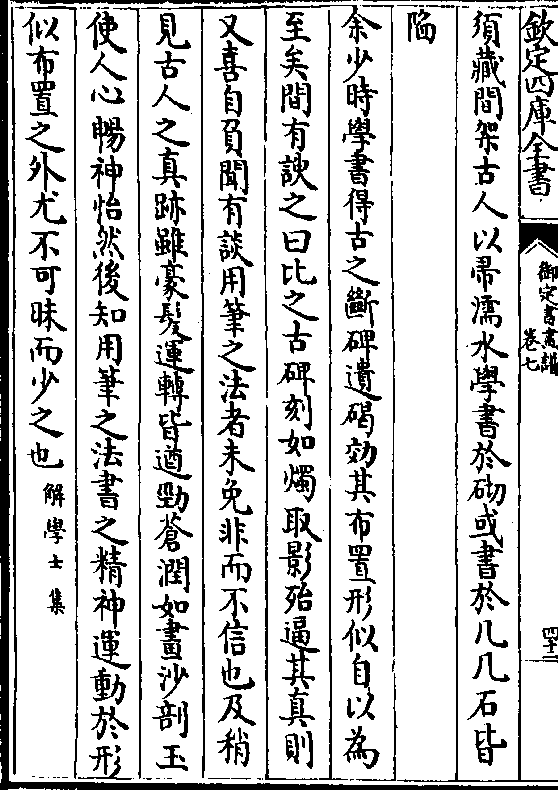 欽定四庫全書
御定書畫譜
卷七
四十二
須藏間架古人以帚濡水學書於砌或書於几几石皆
陷
余少時學書得古之斷碑遺碣効其布置形似自以為
至矣間有諛之曰比之古碑刻如燭取影殆逼其真則
又喜自負聞有談用筆之法者未免非而不信也及稍
見古人之真跡雖豪髮運轉皆遒勁蒼潤如畫沙剖玉
使人心暢神怡然後知用筆之法書之精神運動於形
似布置之外尤不可昧而少之也解學士集